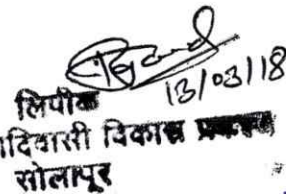 13/03/18
लिपीक
आदिवासी विकास प्रकल्प
सोलापूर